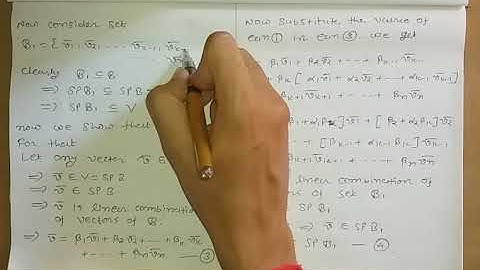 Now consider set
B₁ = { v̄₁, v̄₂, ... v̄ₖ₋₁, v̄ₖ
Clearly B₁ ⊆ B
⇒ SP B₁ ⊆ SP
⇒ SP B₁ ⊆ V
now we show that
For that
Let any vector v̄ ∈
⇒ v̄ ∈ V = SP B
⇒ v̄ ∈ SP B
⇒ v̄ is linear combination
of vectors of B.
⇒ v̄ = β₁v̄₁ + β₂v̄₂ + ... + βₖv̄ₖ
+ ... + βₙv̄ₙ — ③
Now substitute the value of
eqn ① in eqn ③. we get
β₁v̄₁ + β₂v̄₂ + ... + βₖ₋₁ v̄ₖ₋₁
+ βₖ [ α₁v̄₁ + α₂v̄₂ + ... + αₖ₋₁v̄ₖ₋₁]
βₖ₊₁v̄ₖ₊₁ + ... + βₙv̄ₙ
β₁ + α₁βₖ] v̄₁ + [β₂ + α₂βₖ] v̄₂
... + [βₖ₋₁ + αₖ₋₁βₖ] v̄ₖ₋₁
βₖ₊₁v̄ₖ₊₁ + ... + βₙv̄ₙ
linear combination
of set B₁
SP B₁
⇒ v̄ ∈ SP B₁
SP B₁ — ④